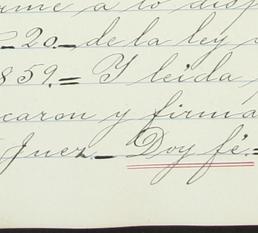 me a lo disp
20._ de la ley
859.= Y leida
caron y firma
Juez._ Doy fé.=